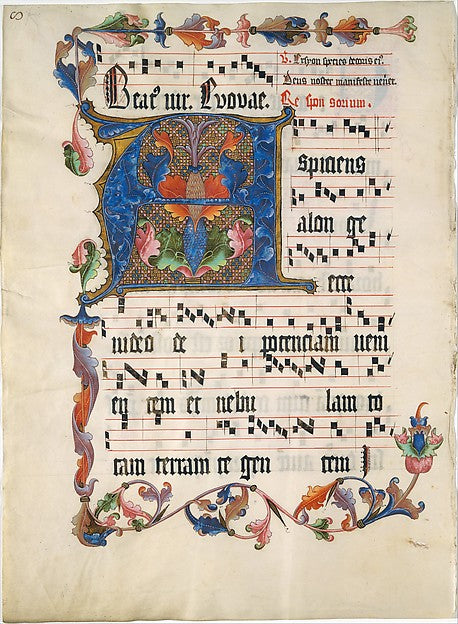 V. Ex syon species decoris eiꝰ.
Deus noster manifeste veniet.
Beatꝰ uir. Evovae. Re spon sorium.
A spiciens
alon ge
ecce
uideo de i potenciam ueni
en tem et nebu lam to
tam terram te gen tem